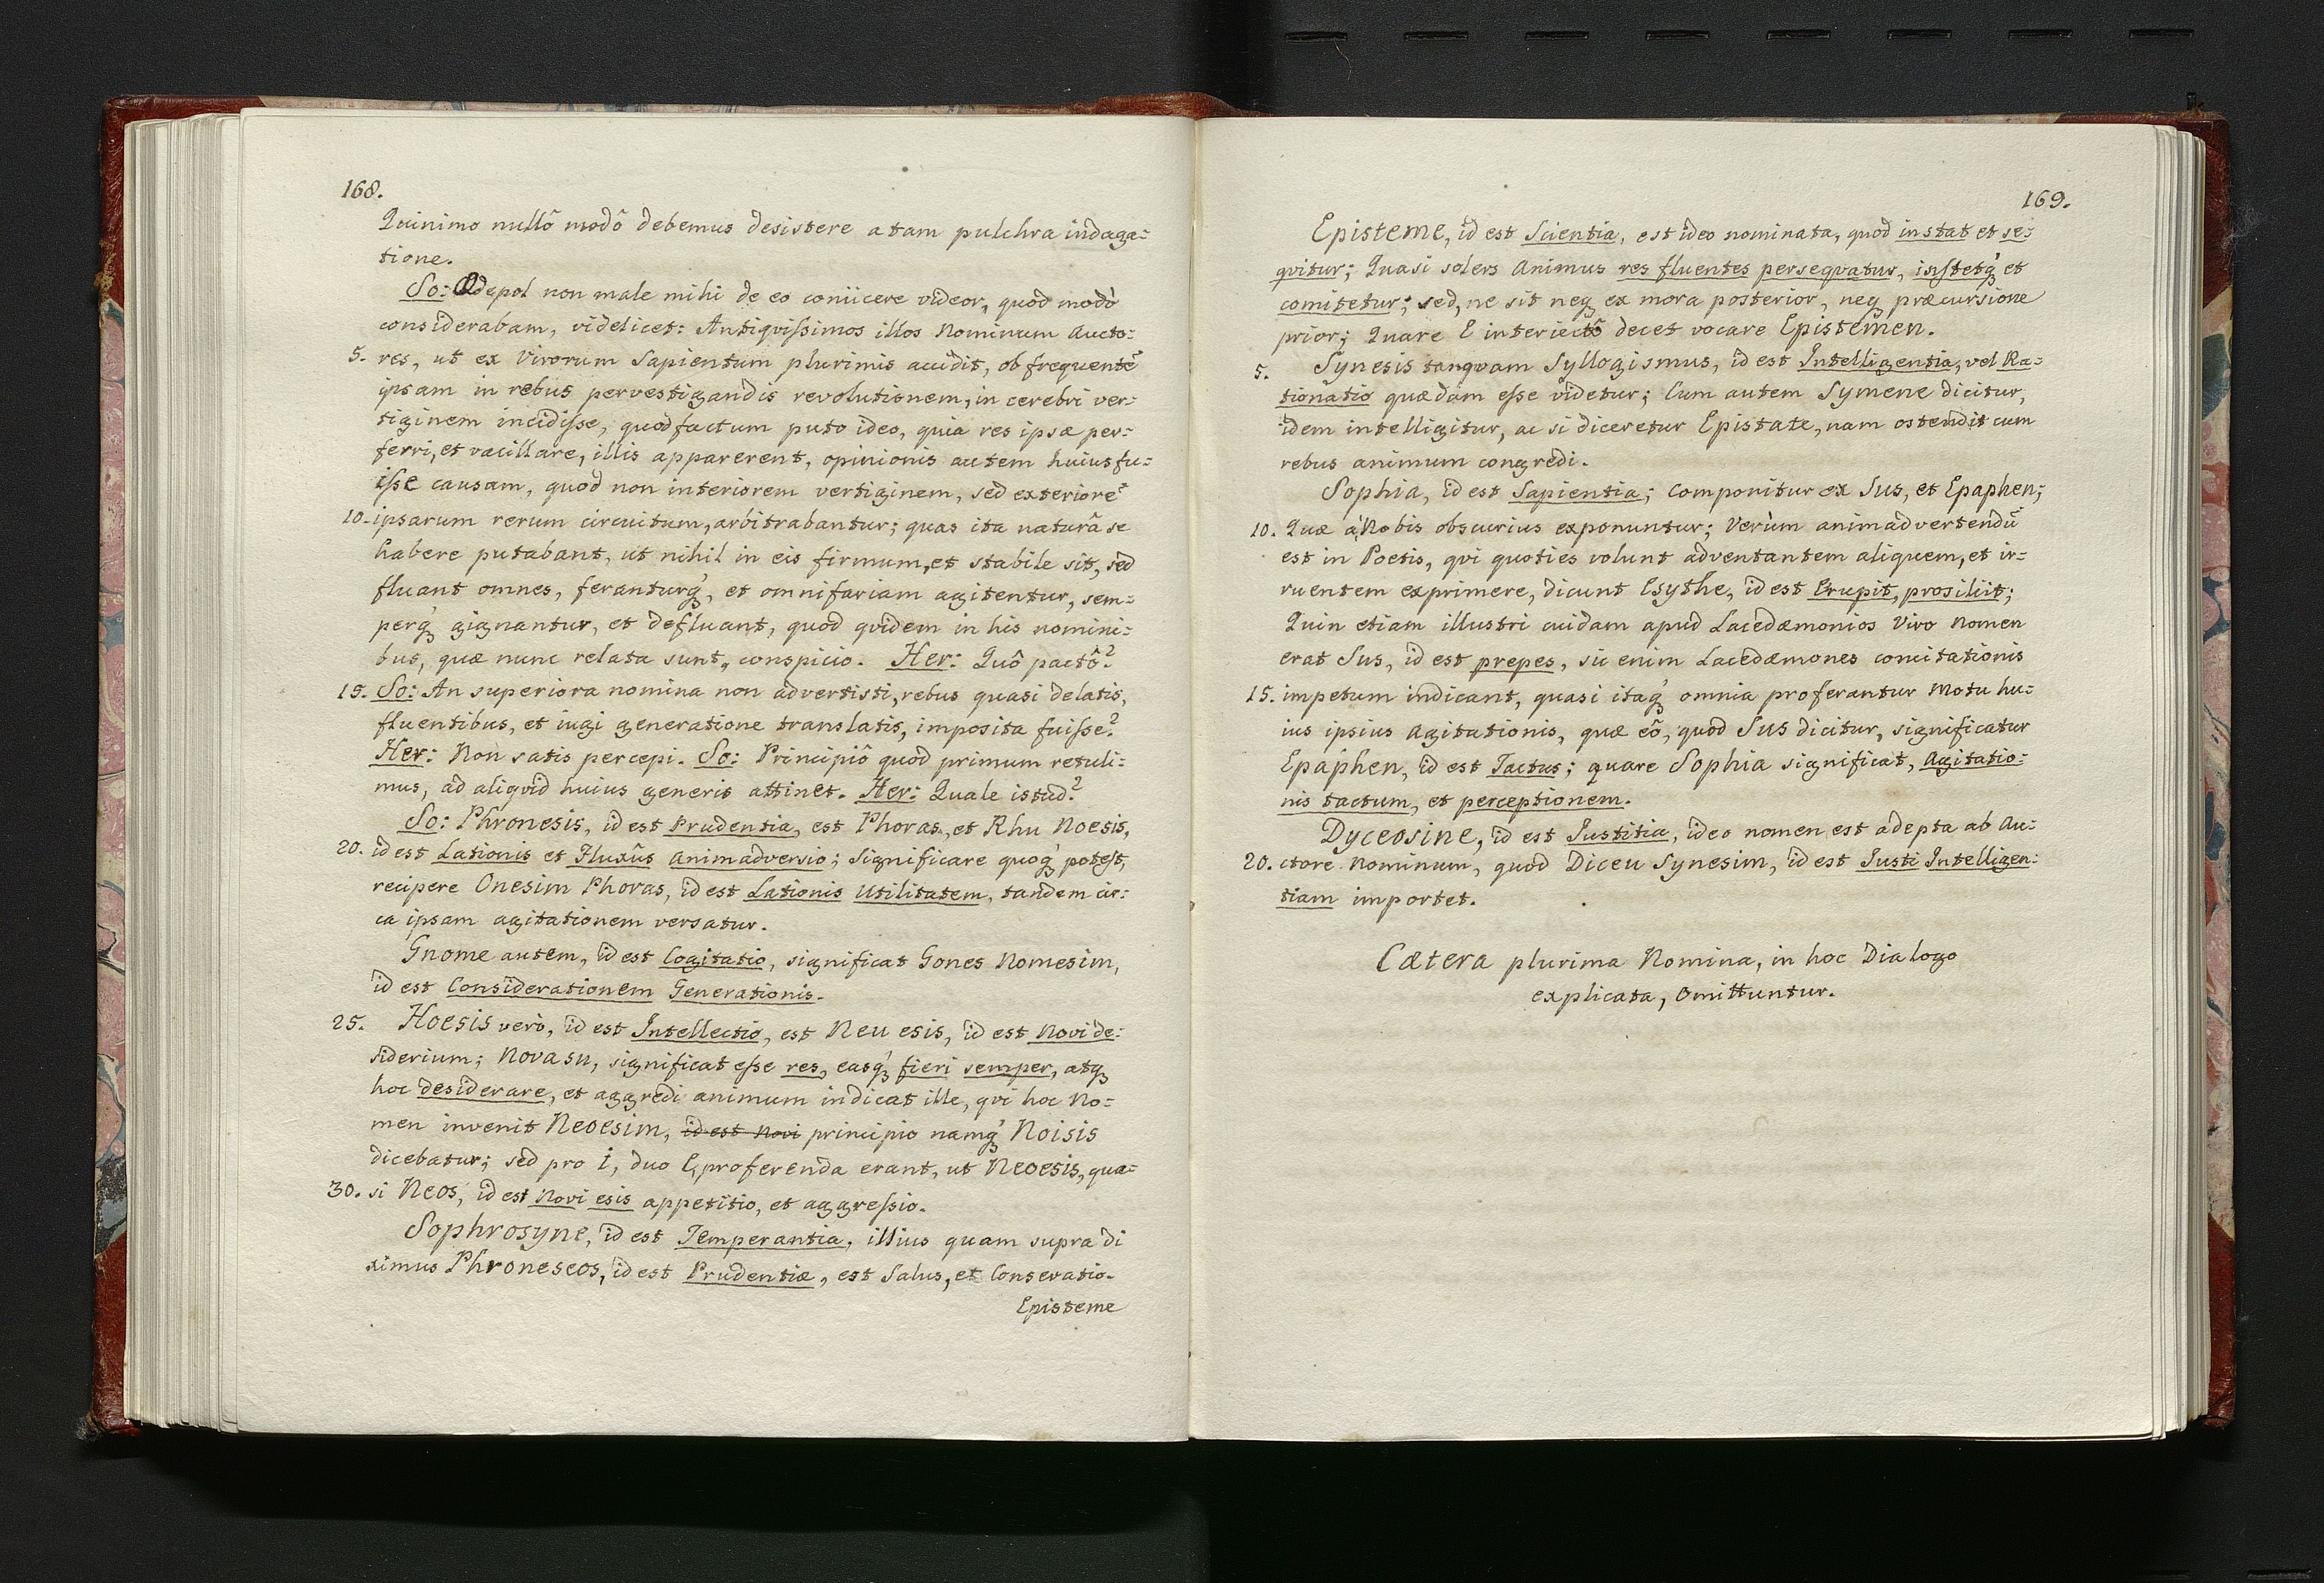 168.
Quinimo nullô modô debemus desistere a tam pulchra indaga=
tione.
So: Ædepol non male mihi de eo coniicere videor, quod modò
considerabam, videlicet: Antiqvißimos illos Nominum Aucto=
5. res, ut ex Virorum Sapientum plurimis accidit, ob frequentē
ipsam in rebus pervestigandis revolutionem, in cerebri ver=
tiginem incidiſse, quod factum puto ideo, quia res ipsæ per=
ferri, et vacillare, illis apparerent, opinionis autem huius fu=
iſse causam, quod non interiorem vertiginem, sed exteriorē
10. ipsarum rerum circuitum, arbitrabantur; quas ita naturâ se
habere putabant, ut nihil in eis firmum, et stabile sit, sed
fluant omnes, feranturq́, et omnifariam agitentur, sem=
perq́ gignantur, et defluant, quod qvidem in his nomini=
bus, quæ nunc relata sunt, conspicio. Her: Quô pactô?
15. So: An superiora nomina non advertisti, rebus quasi delatis,
fluentibus, et iugi generatione translatis, imposita fuiſse?
Her: Non satis percepi. So: Principiô quod primum retuli=
mus, ad aliqvid huius generis attinet. Her: Quale istud?
So: Phronesis, id est Prudentia, est Phoras, et Rhu Noesis,
20. id est Lationis et Fluxûs Animadversio; Significare quoq́ potest,
recipere Onesim Phoras, id est Lationis Utilitatem, tandem cir=
ca ipsam agitationem versatur.
Gnome autem, id est Cogitatio, significat Gones Nomesim,
id est Considerationem Generationis.
25. Hoesis verò, id est Intellectio, est Neu esis, id est Novi de=
siderium; Nova su, significat eſse res, easq́ fieri semper, atq
hoc desiderare, et aggredi animum indicat ille, qvi hoc No=
men invenit Neoesim, id est Novi principio namq́ Noisis
dicebatur; sed pro i, duo E, proferenda erant, ut Neoesis, qua=
30. si Neos, id est Novi esis appetitio, et aggreſsio.
Sophrosyne, id est Temperantia, illius quam supra di
ximus Phroneseos, id est Prudentiæ, est Salus, et Conseratio.
Episteme
169.
Episteme, id est Scientia, est ideo nominata, quod instat et se=
qvitur; Quasi solers Animus res fluentes perseqvatur, instetq́ et
comitetur; sed, ne sit neq ex mora posterior, neq præcursione
prior; Quare E interiectô decet vocare Epistemen.
5. Synesis tanqvam Syllogismus, id est Intelligentia, vel Ra=
tionatio quædam eſse videtur; Cum autem Symene dicitur,
idem intelligitur, ac si diceretur Epistate, nam ostendit cum
rebus animum congredi.
Sophia, id est Sapientia; componitur ex Sus, et Epaphen;
10. Quæ à Nobis obscurius exponuntur; Verùm animadvertendū
est in Poetis, qvi quoties volunt adventantem aliquem, et ir=
ruentem exprimere, dicunt Esythe, id est Erupit, prosiliit;
Quin etiam illustri cuidam apud Lacedæmonios Viro Nomen
erat Sus, id est prepes, sic enim Lacedæmones concitationis
15. impetum indicant, quasi itaq́ omnia proferantur Motu hu=
ius ipsius Agitationis, quæ eô, quod Sus dicitur, significatur
Epaphen, id est Tactus; quare Sophia significat, Agitatio=
nis tactum, et perceptionem.
Dyceosine, id est Iustitia, ideo nomen est adepta ab Au=
20. ctore Nominum, quod Diceu Synesim, id est Iusti Intelligen=
tiam importet.
Cætera plurima Nomina, in hoc Dialogo
explicata, Omittuntur.